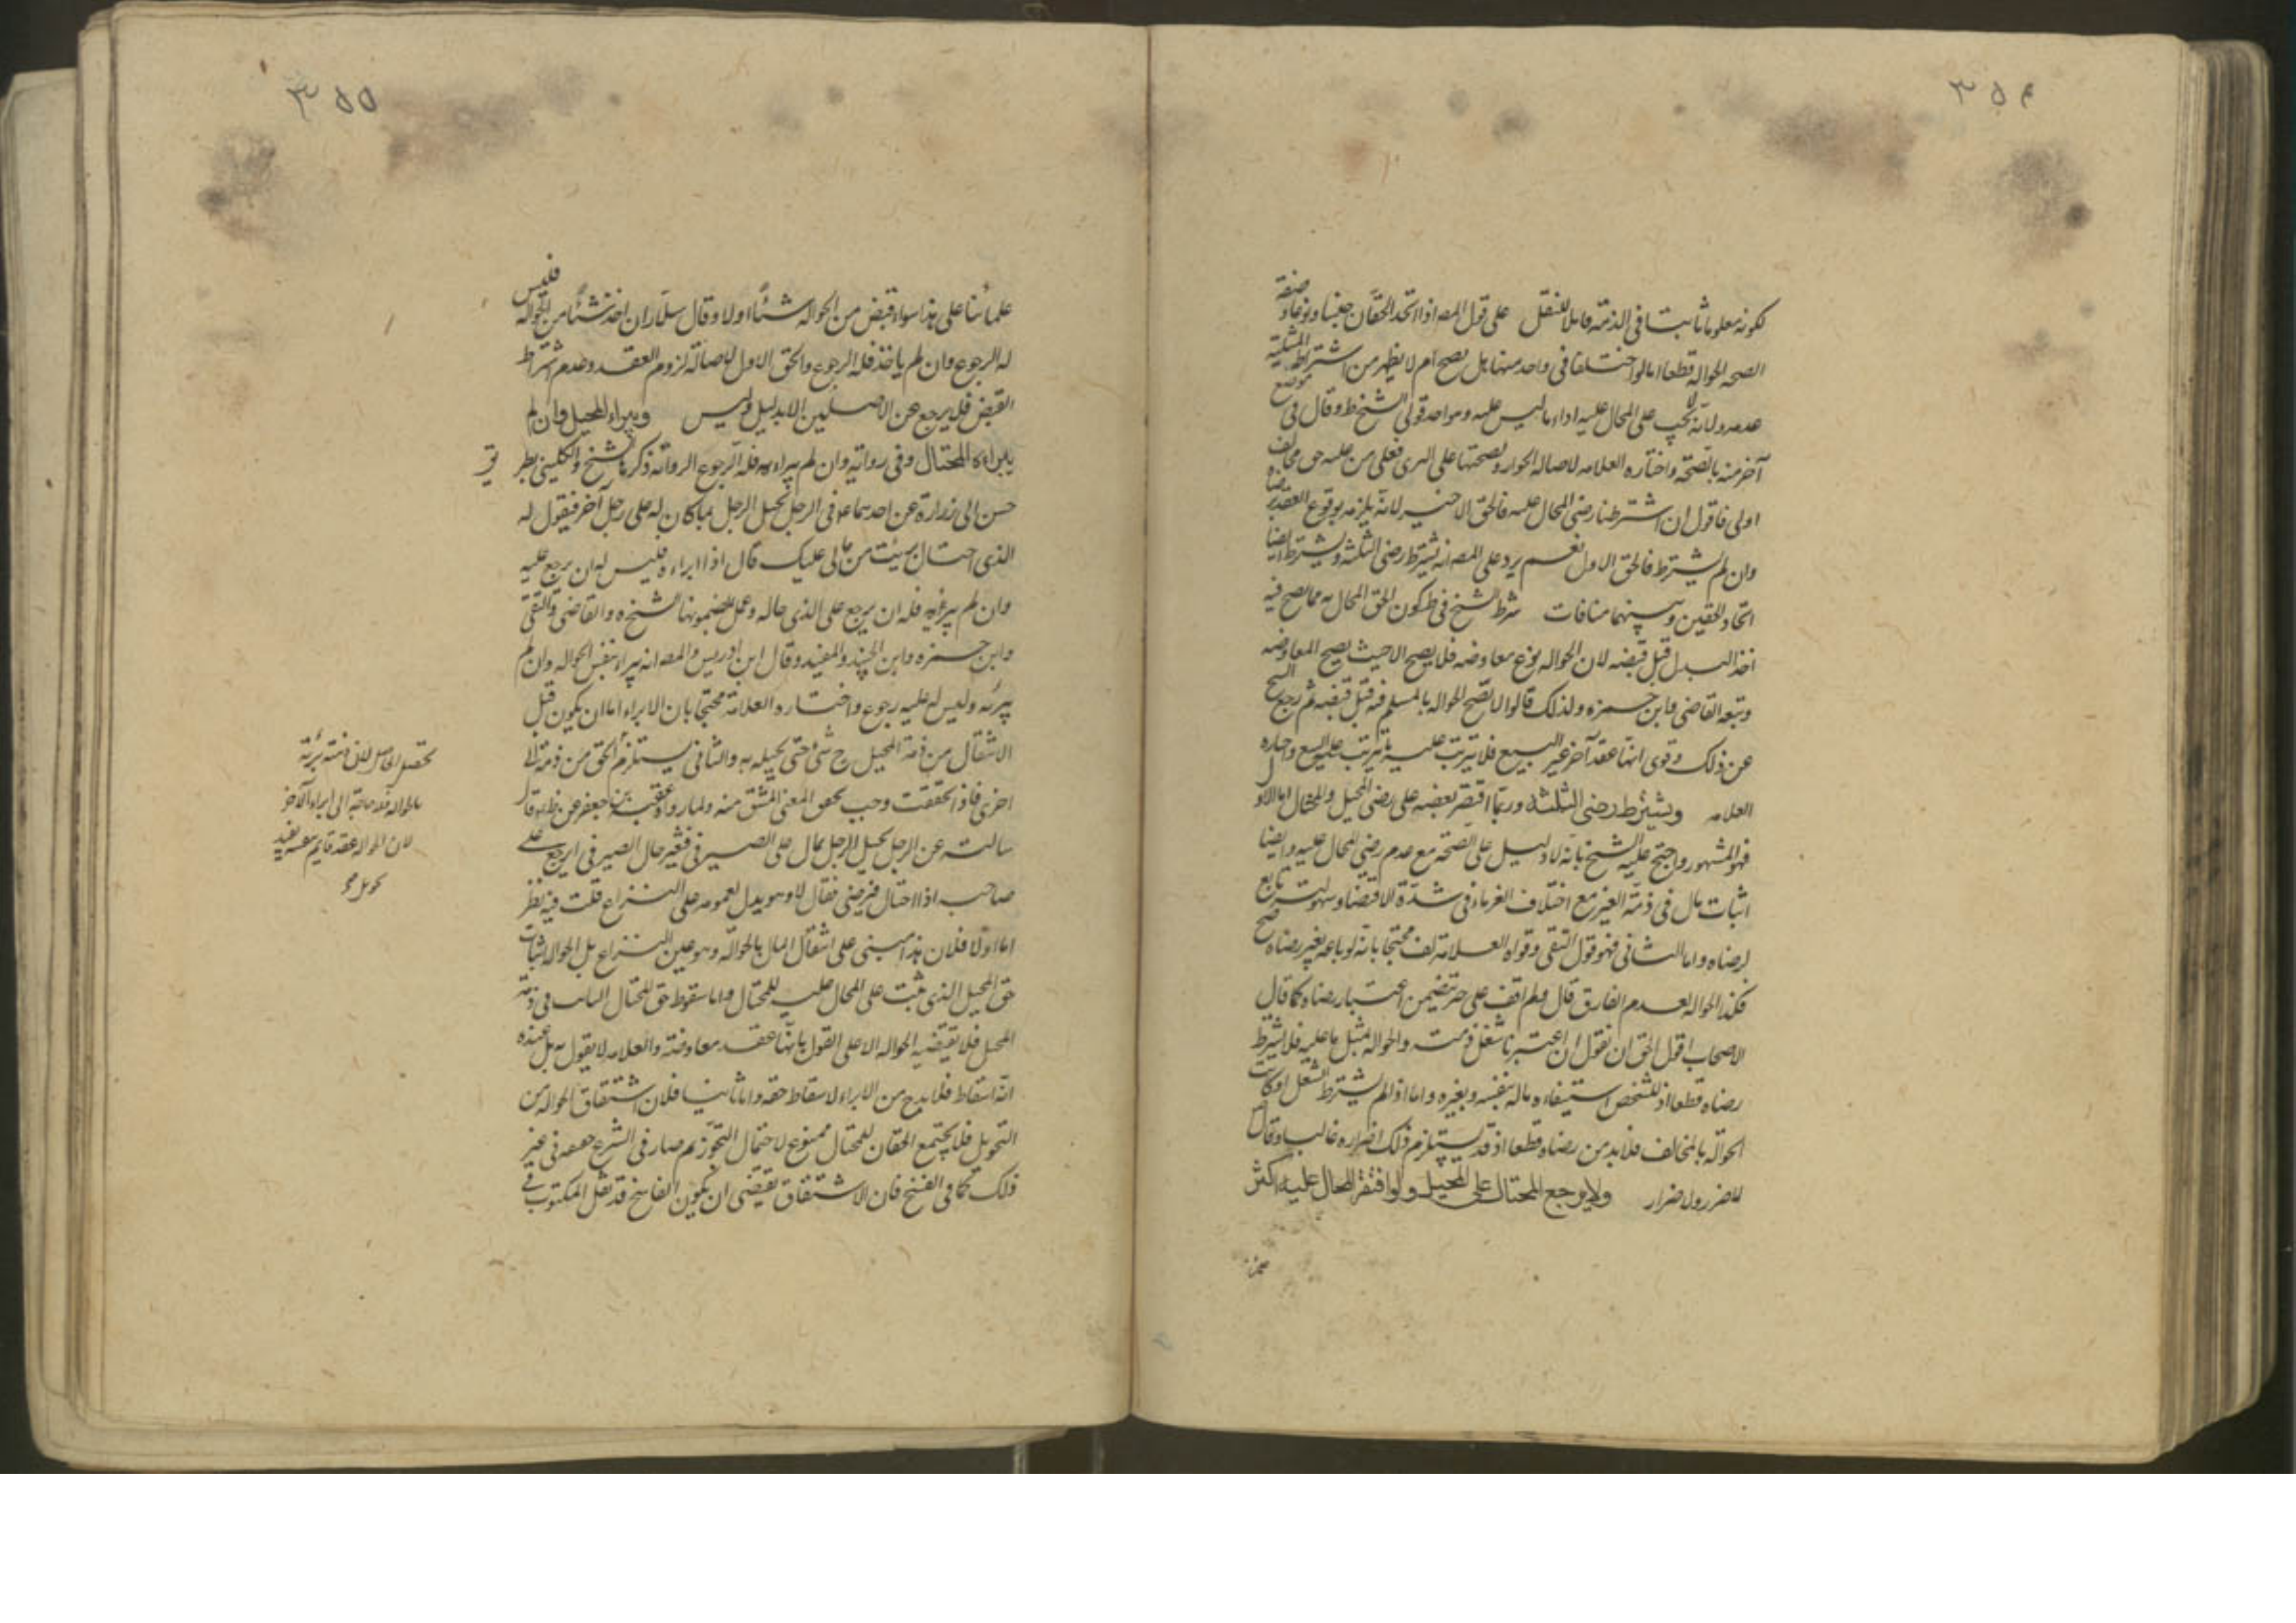 ٣٥٤
لكونه معلوما ثابتا فى الذمة قابلا للنقل على قول المصـ اذا اتحد الحقان جنسا ونوعا وصفة
الصحه الحوالة قطعا اما لو اختلفا فى واحد منها هل يصح ام لا يظهر من اشتراط المثلية
عدمه ولانه لا يجب على المحال عليه اداء ما ليس عليه وهو احد قولى الشيخ ط وقال فى موضع
آخر منه بالصحة واختاره العلامه لاصالة الجواز ولصحتها على البرى فعلى من عليه حق مخالف
اولى فاقول ان اشترطنا رضى المحال عليه فالحق الاخير لانه يلزمه بوقوع العقد برضاه
وان لم يشترط فالحق الاول نعم يرد على المصـ انه يشترط رضى الثلثة ويشترط ايضا
اتحاد الحقين وبينهما منافات شرط الشيخ فى ط كون الحق المحال به مما يصح فيه
اخذ البدل قبل قبضه لان الحواله نوع معاوضه فلا يصح الا حيث يصح المعاوضه
وتبعه القاضى وابن حمزه ولذلك قالوا لا تصح الحواله بالمسلم فيه قبل قبضه ثم رجع الشيخ
عن ذلك وقوى انها عقد آخر غير البيع فلا يترتب عليه ما يترتب على البيع واختاره
العلامه ويشترط رضى الثلثة وربما اقتصر بعضه على رضى المحيل والمحتال اما الاول
فهو المشهور واحتج عليه الشيخ بانه لا دليل على الصحة مع عدم رضى المحال عليه وايضا
اثبات مال فى ذمة الغير مع اختلاف الغرماء فى شدة الاقتضا وسهولته تابع
لرضاه واما الثانى فهو قول التقى وقواه العلامة لف محتجا بانه لو باعه بغير رضاه صح
فكذا الحواله لعدم الفارق قال ولم اقف على خبر تتضمن اعتبار رضاه كما قال
الاصحاب اقول الحق ان نقول ان اعتبرنا شغل ذمته والحواله بمثل ما عليه فلا يشترط
رضاه قطعا اذ للشخص استيفاء ماله بنفسه وبغيره واما اذا لم يشترط الشغل او كانت
الحوالة بالمخالف فلا بد من رضاه قطعا اذ قد يستلزم ذلك اضراره غالبا وقال
لا ضرر ولا ضرار ولا يرجع المحتال على المحيل ولو افتقر المحال عليه اكثر
٣٥٥
علمائنا على هذا سواء قبض من الحواله شئا اولا وقال سلار ان اخذ شئا من الحواله فليس
له الرجوع وان لم ياخذ فله الرجوع والحق الاول لاصالة لزوم العقد وعدم اشتراط
القبض فلا يرجع عن الاصلين الا بدليل وليس ويبراء المحيل وان لم
يبراه المحتال وفى رواية وان لم يبراه فله الرجوع الرواية ذكرها الشيخ والكلينى بطريق
حسن الى زرارة عن احدهما ع فى الرجل يحيل الرجل بما كان له على رجل آخر فيقول له
الذى احتال برئت من مالى عليك قال اذا ابراه فليس له ان يرجع عليه
وان لم يبرئه فله ان يرجع على الذى احاله وعمل بمضمونها الشيخ ه والقاضى والتقى
وابن حمزه وابن الجنيد والمفيد وقال ابن ادريس والمصـ انه يبراء بنفس الحواله وان لم
يبرئه وليس له عليه رجوع واختاره العلامة محتجا بان الابراء اما ان يكون قبل
الانتقال من ذمة المحيل ح شئ حتى يحيله به والثانى يستلزم الحق من ذمة الى
اخرى فاذا تحققت وجب تحقق المعنى المشتق منه ولما رواه عقبة بن جعفر عن ظ ع قال
سالته عن الرجل يحيل الرجل بمال على الصيرفى فتغير حال الصيرفى ايرجع على
صاحبه اذا احتال فرضى فقال لا وهو يدل لعمومه على النزاع قلت فيه نظر
اما اولا فلان هذا مبنى على انتقال المال بالحوالة وهو عين النزاع بل الحواله اثبات
حق المحيل الذى يثبت على المحال عليه للمحتال واما سقوط حق المحتال الثابت فى ذمة
المحيل فلا يقتضيه الحواله الا على القول بانها عقد معاوضة والعلامه لا يقول به بل عنده
انه اسقاط فلا بد ح من الابراء لاسقاط حقه واما ثانيا فلان اشتقاق الحواله من
التحويل فلا يجتمع الحقان للمحتال ممنوع لاحتمال التجوز ثم صار فى الشرع حقيقة فى غير
ذلك كما فى الفسخ فان الاشتقاق يقتضى ان يكون الفاسخ قد نقل المكتوب فى
تحصيل الحاصل لان ذمته بريئة
بالحواله فلا حاجة الى ابراء آخر
لان الحواله عقد قايم بنفسه يفيد